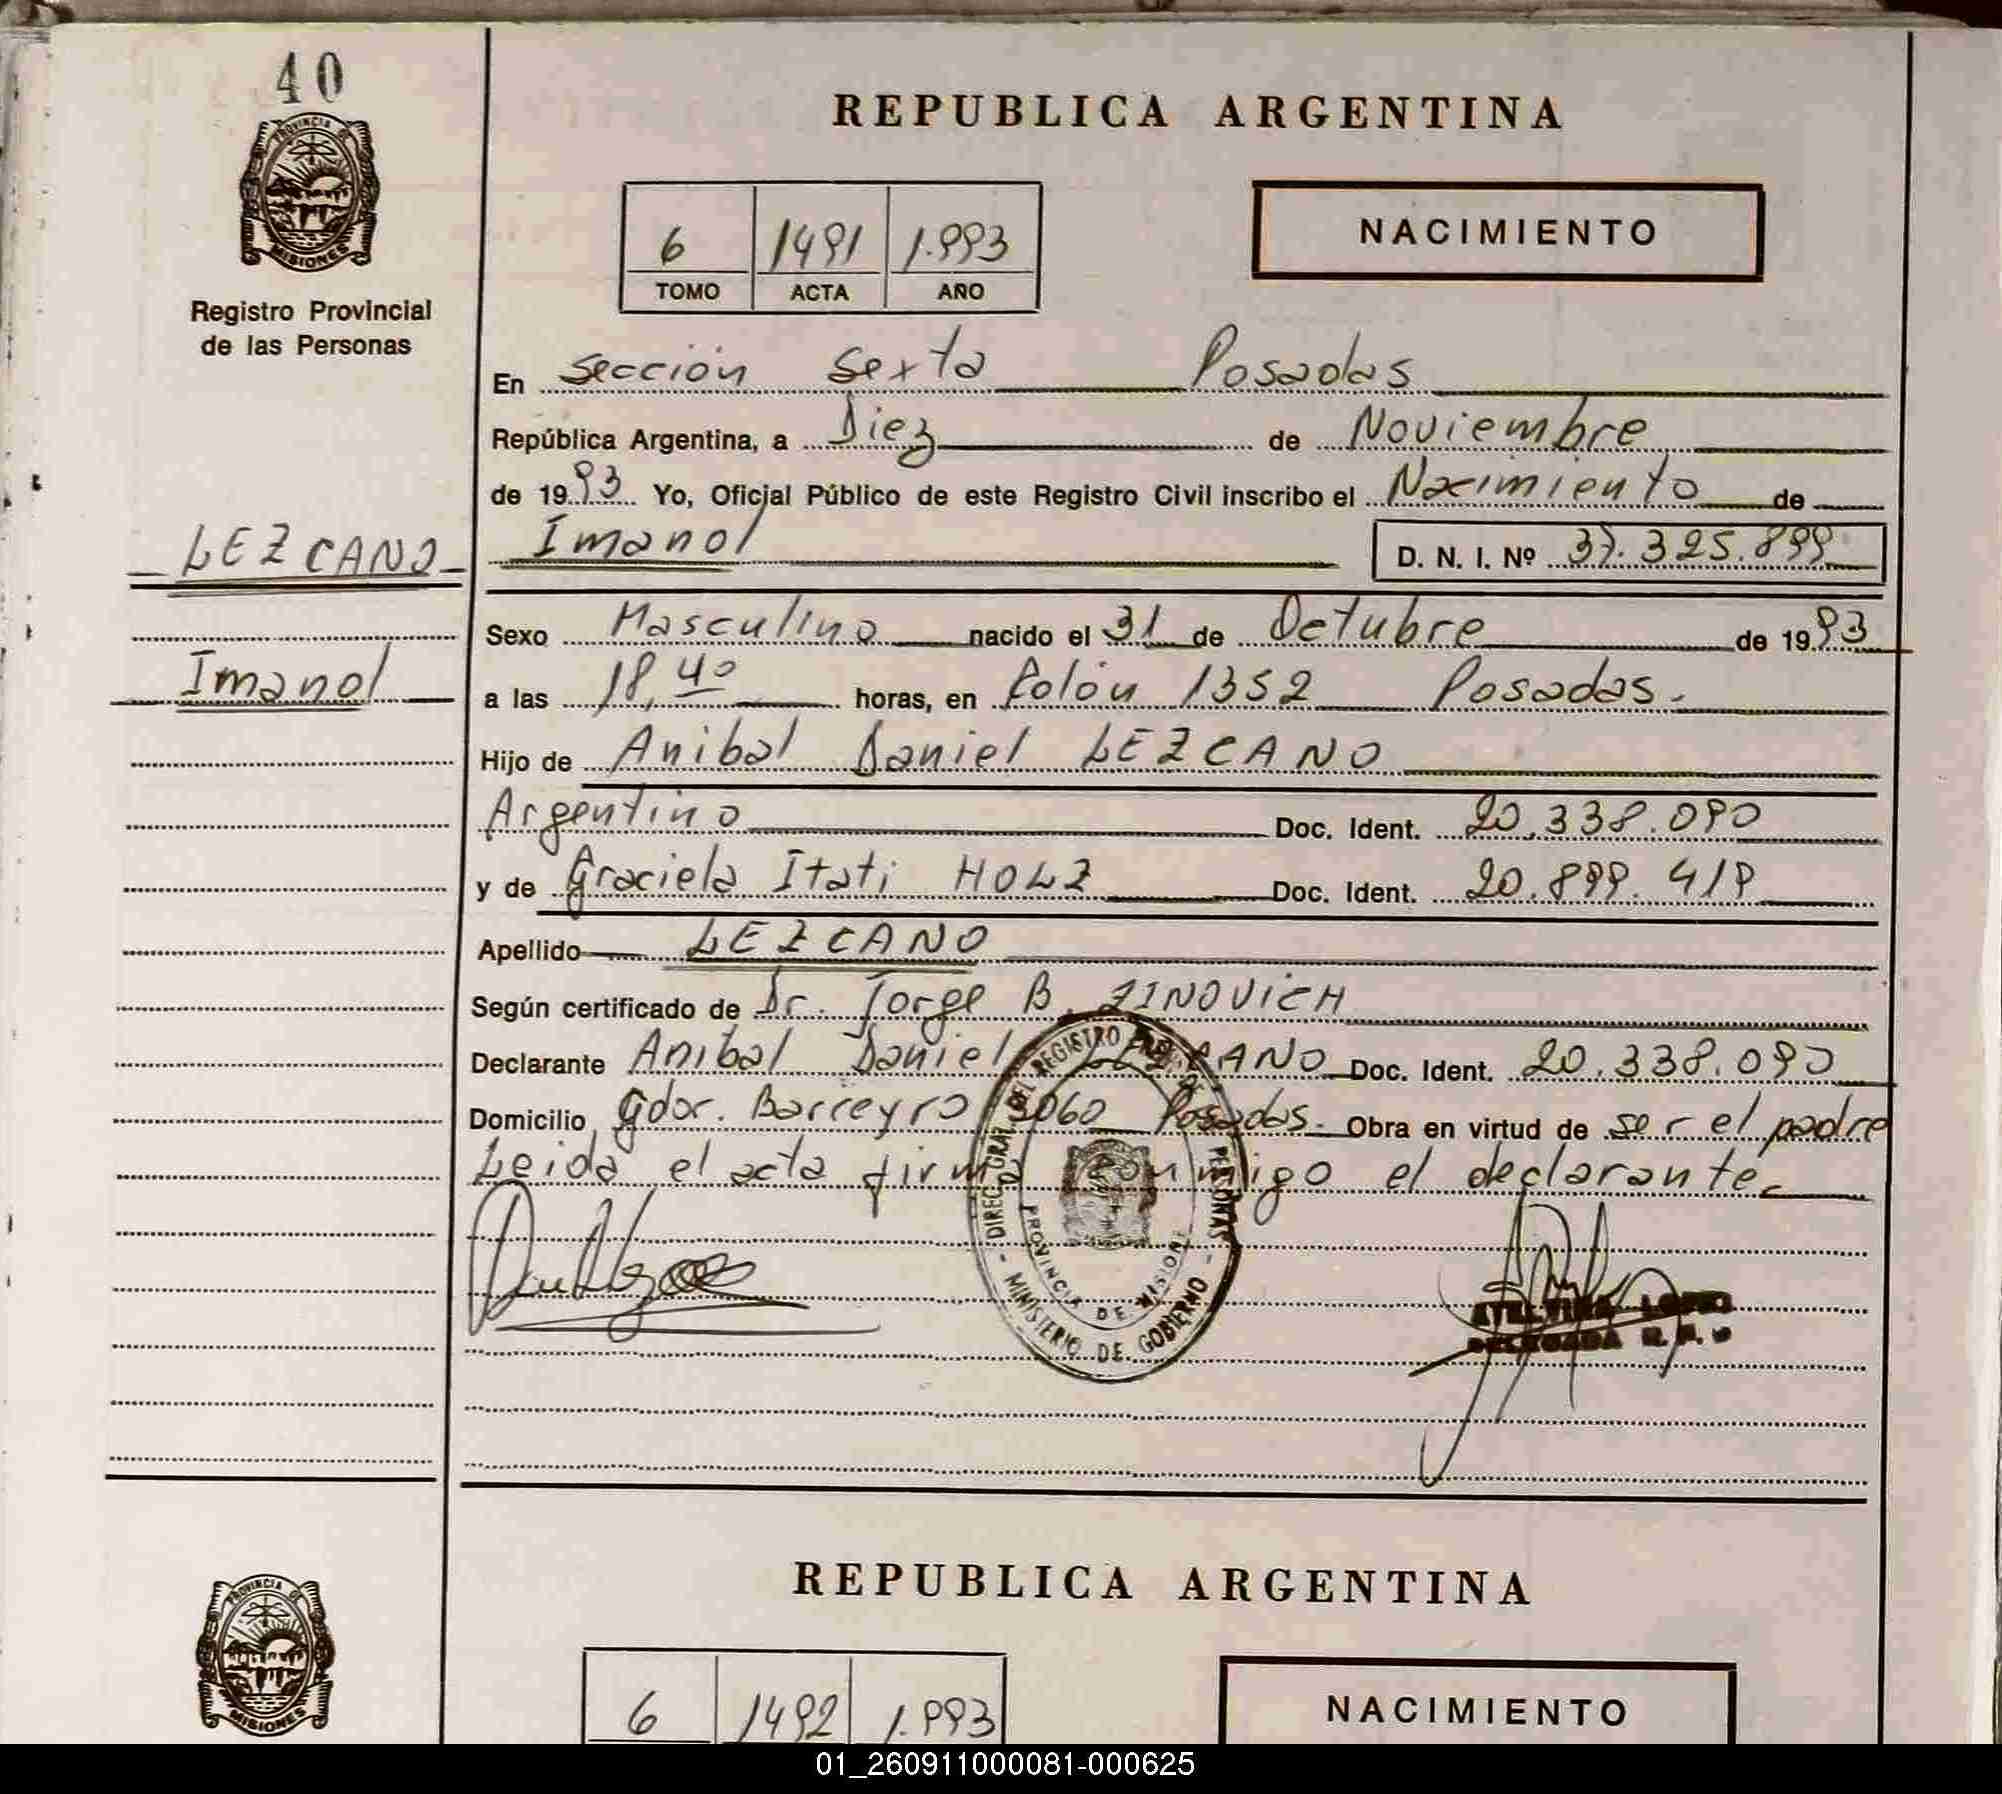 40
PROVINCIA DE
MISIONES
Registro Provincial
de las Personas
REPUBLICA ARGENTINA
6 1491 1.993
TOMO ACTA AÑO
NACIMIENTO
En Sección Sexta Posadas
República Argentina, a Diez de Noviembre
de 1993 Yo, Oficial Público de este Registro Civil inscribo el Nacimiento de
LEZCANO Imanol D. N. I. Nº 37.325.899
Sexo Masculino nacido el 31 de Octubre de 1993
Imanol
a las 18,40 horas, en Colón 1352 Posadas.
Hijo de Anibal Daniel LEZCANO
Argentino Doc. Ident. 20.338.090
y de Graciela Itati HOLZ Doc. Ident. 20.899.419
Apellido LEZCANO
Según certificado de Dr. Jorge B. ZINOVICH
Declarante Anibal Daniel LEZCANO Doc. Ident. 20.338.090
Domicilio Gdor. Barreyro 3060 Posadas. Obra en virtud de ser el padre
Leida el acta firma conmigo el declarante.
DIREC. GRAL. DEL REGISTRO DE PERSONAS
PROVINCIA DE MISIONES
- MINISTERIO DE GOBIERNO -
LOPEZ
DELEGADA
REPUBLICA ARGENTINA
PROVINCIA DE
MISIONES
6 1492 1.993
NACIMIENTO
01_260911000081-000625